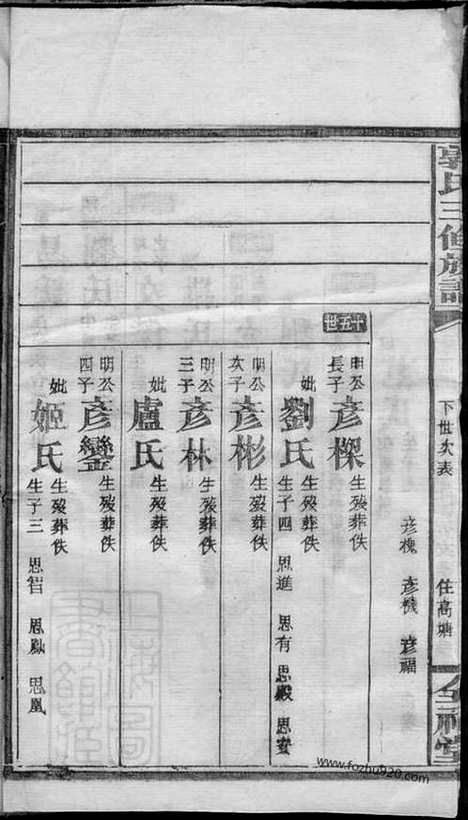 郭氏三修族譜
下世次表
住高塘
彥槐 彥機 彥福
十五世
明公長子 彥櫟 生殁葬佚
妣 劉氏 生殁葬佚 生子四 思進 思有 思殿 思安
明公次子 彥彬 生殁葬佚
明公三子 彥林 生殁葬佚
妣 盧氏 生殁葬佚
明公四子 彥鑾 生殁葬佚
妣 姬氏 生殁葬佚 生子三 思智 思鳳 思凰
www.fozhu920.com